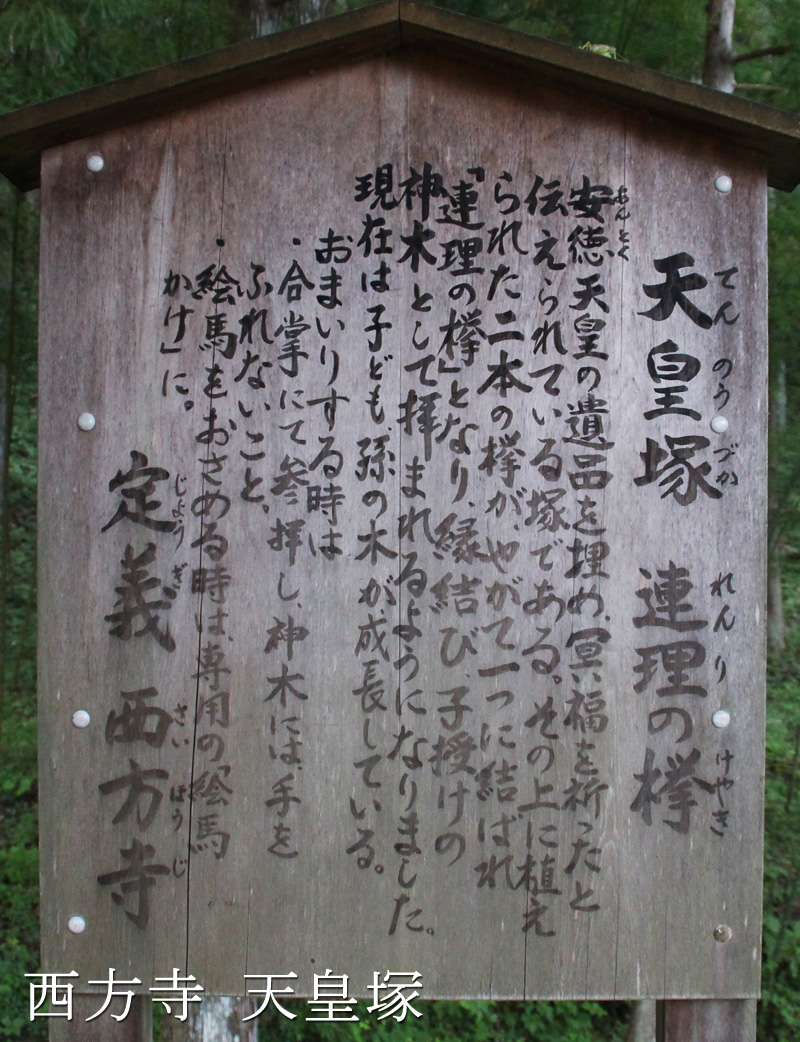 天皇塚 連理の欅
てんのうづか れんり けやき
安徳天皇の遺品を埋め、冥福を祈ったと
あんとく
伝えられている塚である。その上に植え
られた二本の欅が、やがて一つに結ばれ
「連理の欅」となり、縁結び、子授けの
神木として拝まれるようになりました。
現在は子ども、孫の木が成長している。
おまいりする時は
・合掌にて参拝し、神木には、手を
ふれないこと。
・絵馬をおさめる時は、専用の「絵馬
かけ」に。
定義 西方寺
じょうぎ さいほうじ
西方寺 天皇塚